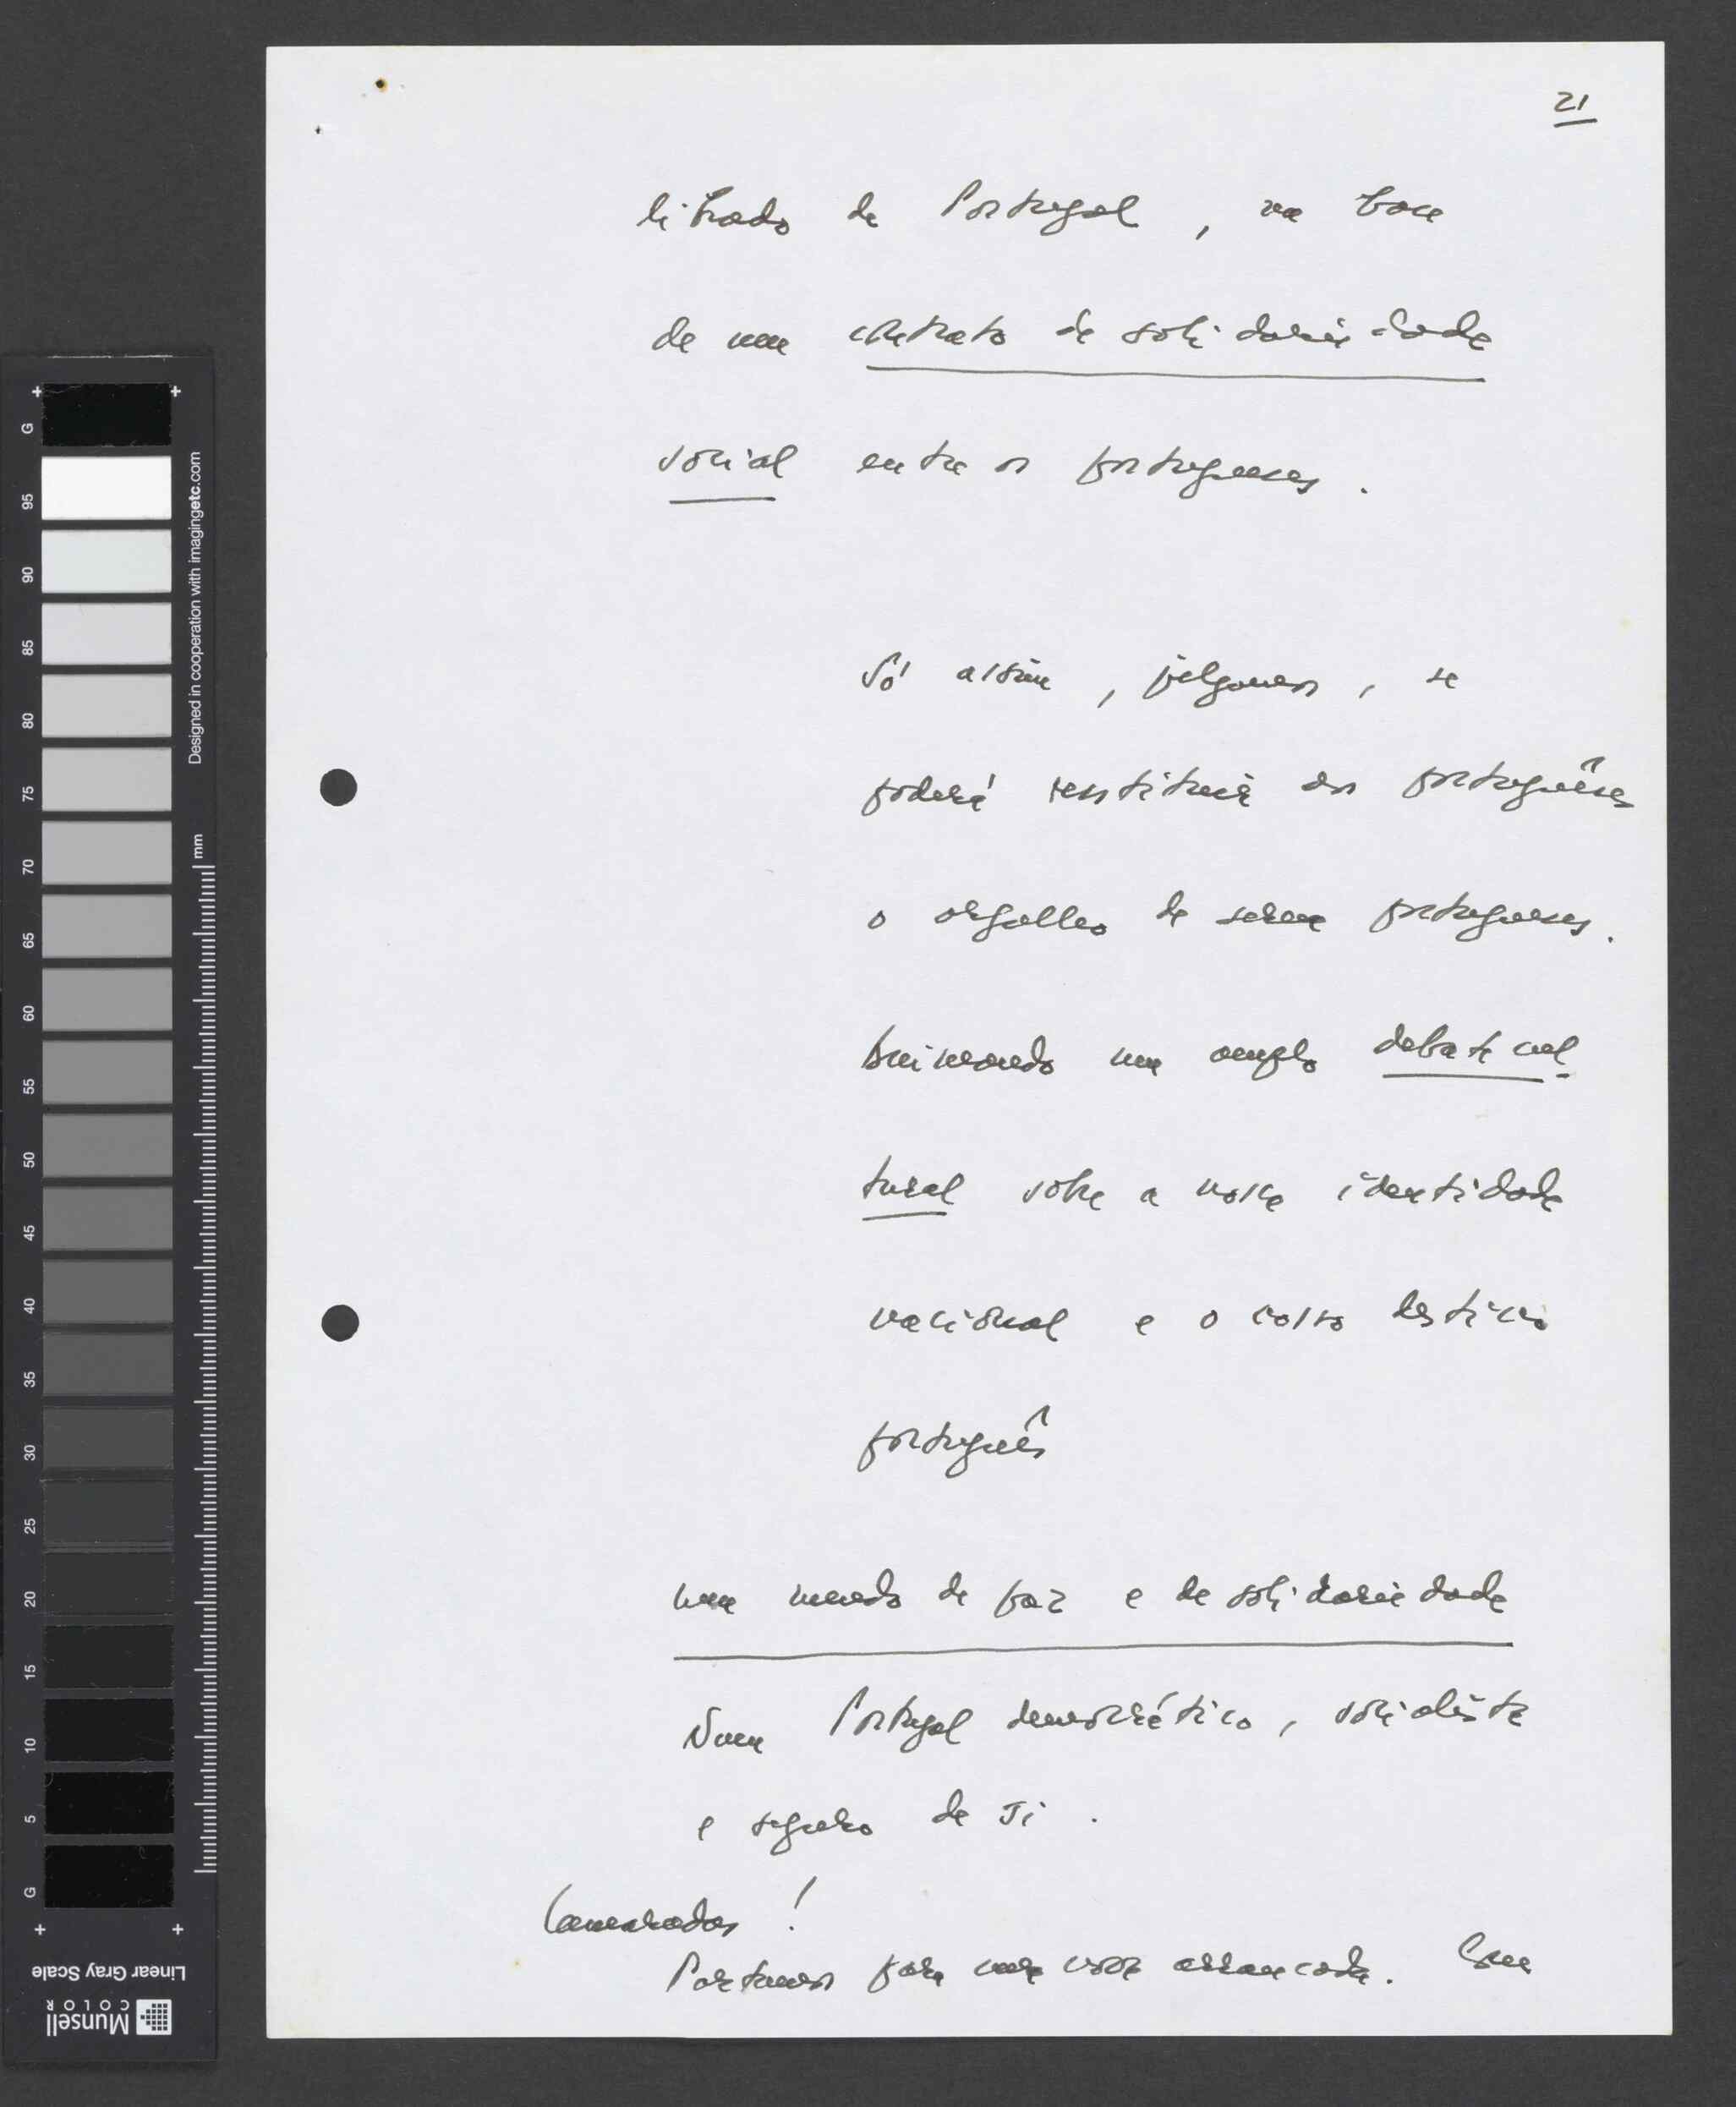 21
librado de Portugal, na base
de um contrato de solidariedade
social entre os portugueses.
Só assim, julgamos, se
poderá restituir aos portuguêses
o orgulho de serem portugueses.
um amplo debate cul-
tural sobre a nossa identidade
nacional e o nosso destino
português
num mundo de paz e de solidariedade
Num Portugal democrático, socialista
e seguro de si.
Camaradas!
Partamos para uma nova arrancada. Com
G 95 90 85 80 75 70 65 60 55 50 45 40 35 30 25 20 15 10 5 G
Designed in cooperation with imagingetc.com
mm
Linear Gray Scale
Munsell
COLOR